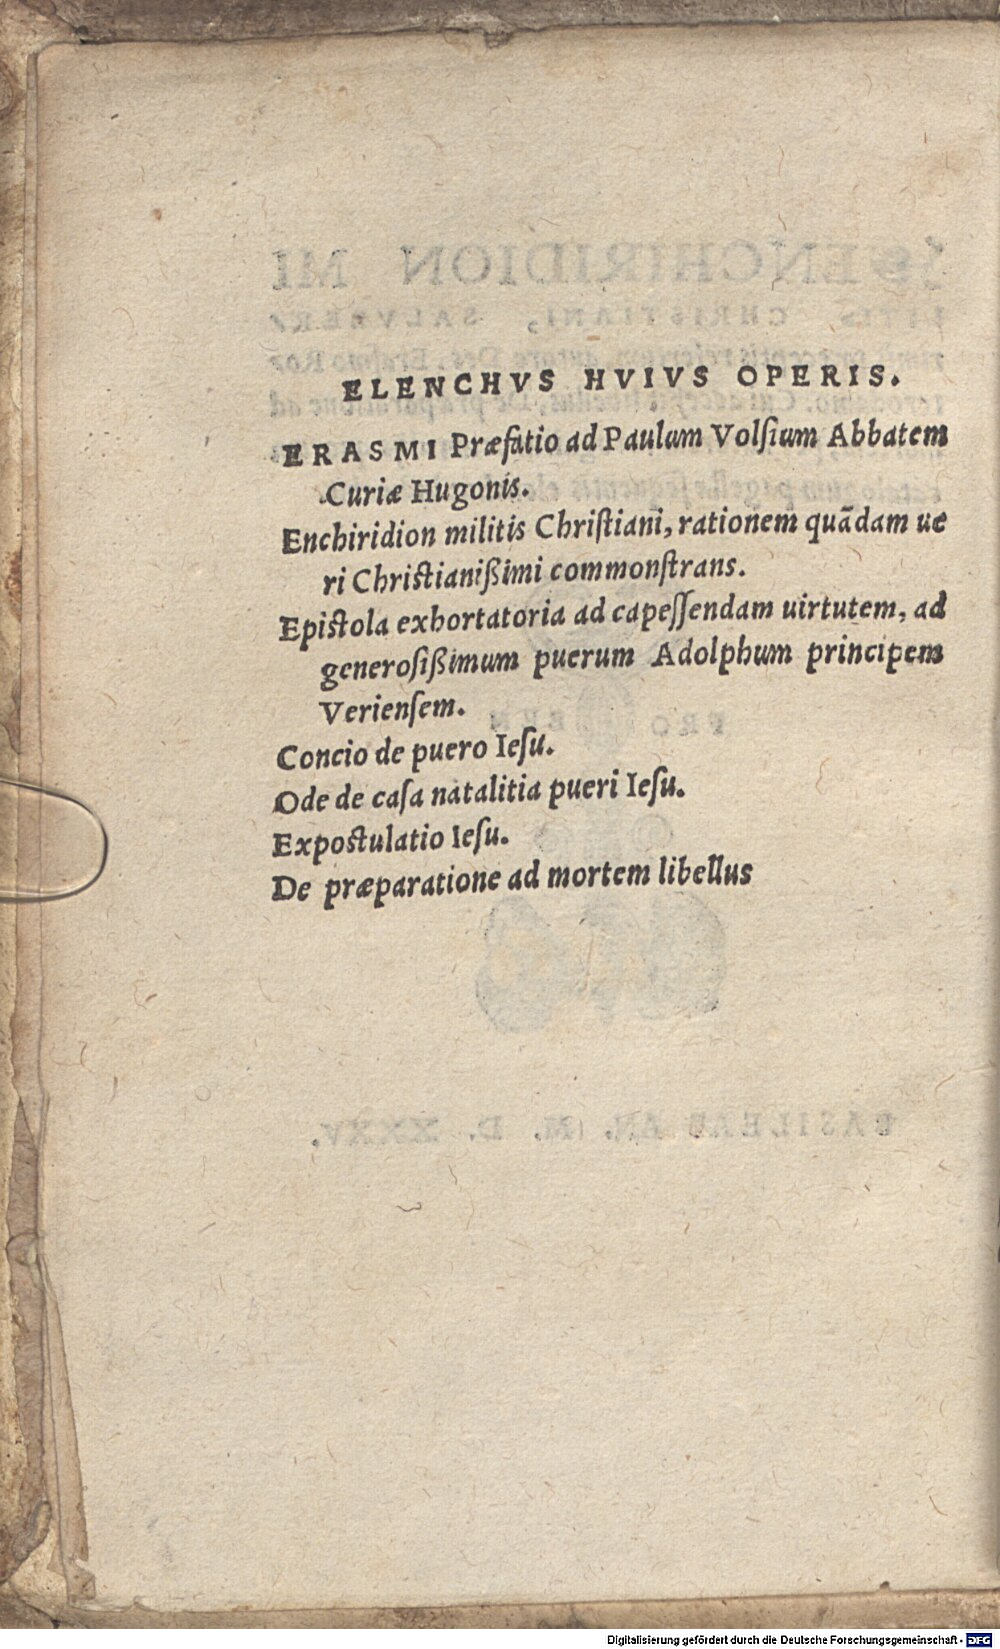 ELENCHVS HVIVS OPERIS.
ERASMI Præfatio ad Paulum Volſium Abbatem
Curiæ Hugonis.
Enchiridion militis Chriſtiani, rationem quãdam ue
ri Chriſtianißimi commonſtrans.
Epiſtola exhortatoria ad capeſſendam uirtutem, ad
generoſißimum puerum Adolphum principem
Verienſem.
Concio de puero Ieſu.
Ode de caſa natalitia pueri Ieſu.
Expoſtulatio Ieſu.
De præparatione ad mortem libellus
Digitalisierung gefördert durch die Deutsche Forschungsgemeinschaft - DFG